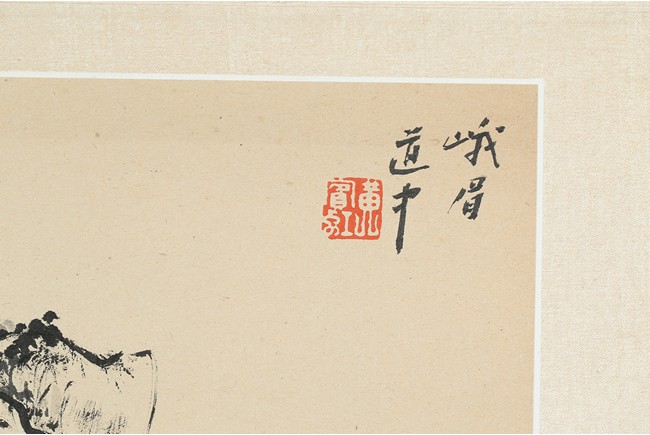 峨眉
道中
黃山
賓虹